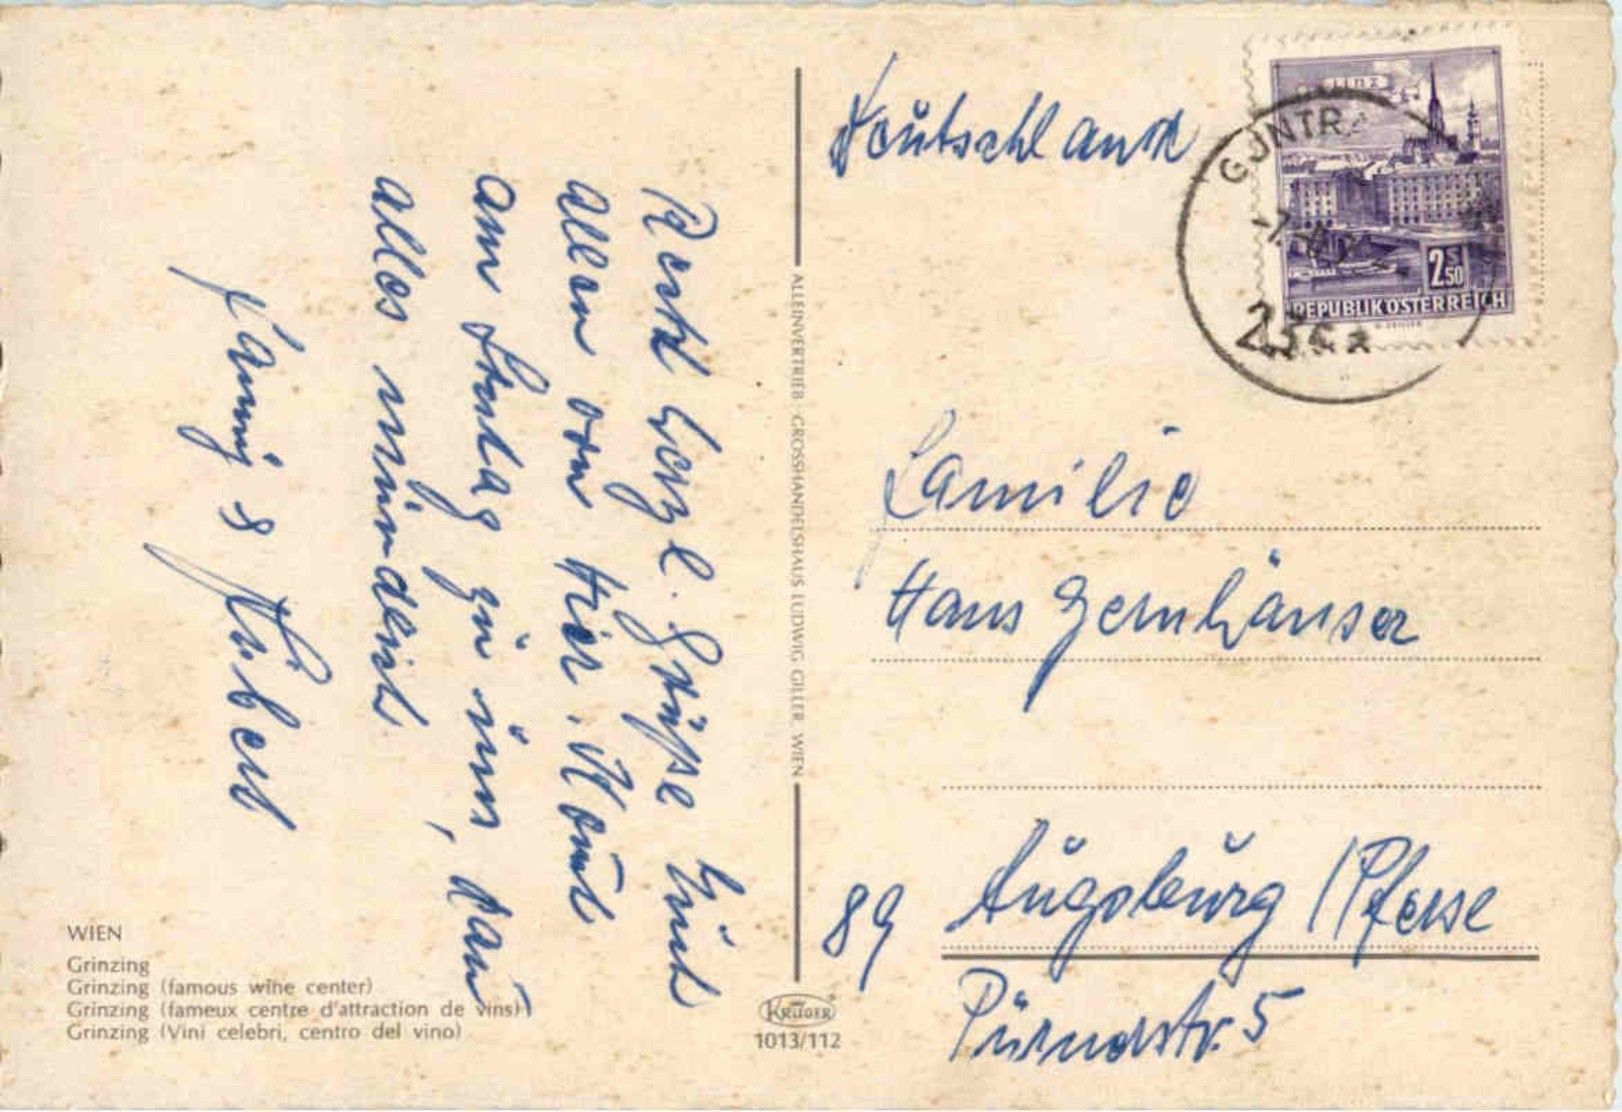 Recht herzl. Grüße Euch
allen von hier. Kommt
am zu uns, dan
alles mündlich
Fanny & Hubert
WIEN
Grinzing
Grinzing (famous wine center)
Grinzing (fameux centre d'attraction de vins)
Grinzing (Vini celebri, centro del vino)
ALLEINVERTRIEB · GROSSHANDELSHAUS LUDWIG GILLER, WIEN
KRÜGER
1013/112
Deutschland
GUNTRA
2 S 50
REPUBLIK ÖSTERREICH
Familie
Hans Gernhäuser
89 Augsburg / Pfersee
5